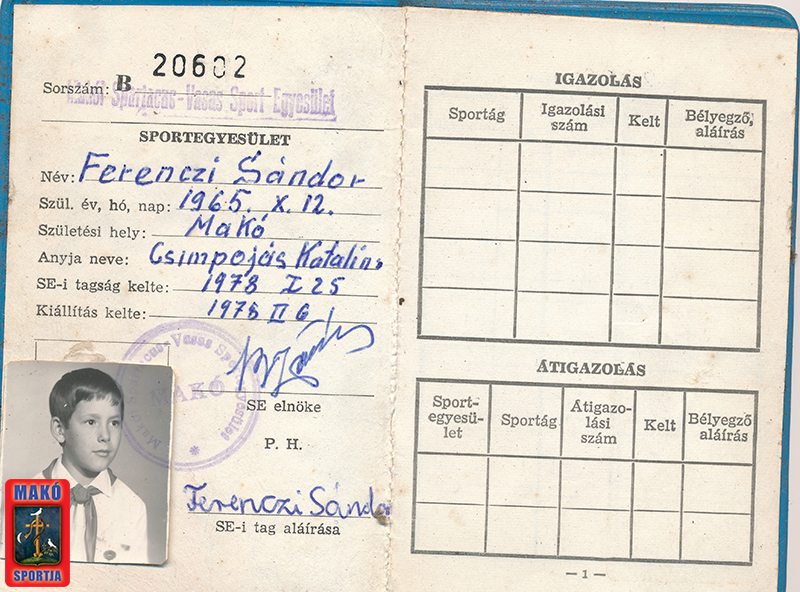 20602
Sorszám: B
Makói Spartacus-Vasas Sport Egyesület
SPORTEGYESÜLET
Név: Ferenczi Sándor
Szül. év, hó, nap: 1965. X. 12.
Születési hely: Makó
Anyja neve: Csimpojás Katalin
SE-i tagság kelte: 1978 I 25
Kiállítás kelte: 1978 II 6
MAKÓ
SE elnöke
P. H.
Ferenczi Sándor
SE-i tag aláírása
MAKÓ
SPORTJA
IGAZOLÁS
Sportág Igazolási szám Kelt Bélyegző, aláírás
ÁTIGAZOLÁS
Sport-egyesü-let Sportág Átigazo-lási szám Kelt Bélyegző aláírás
— 1 —